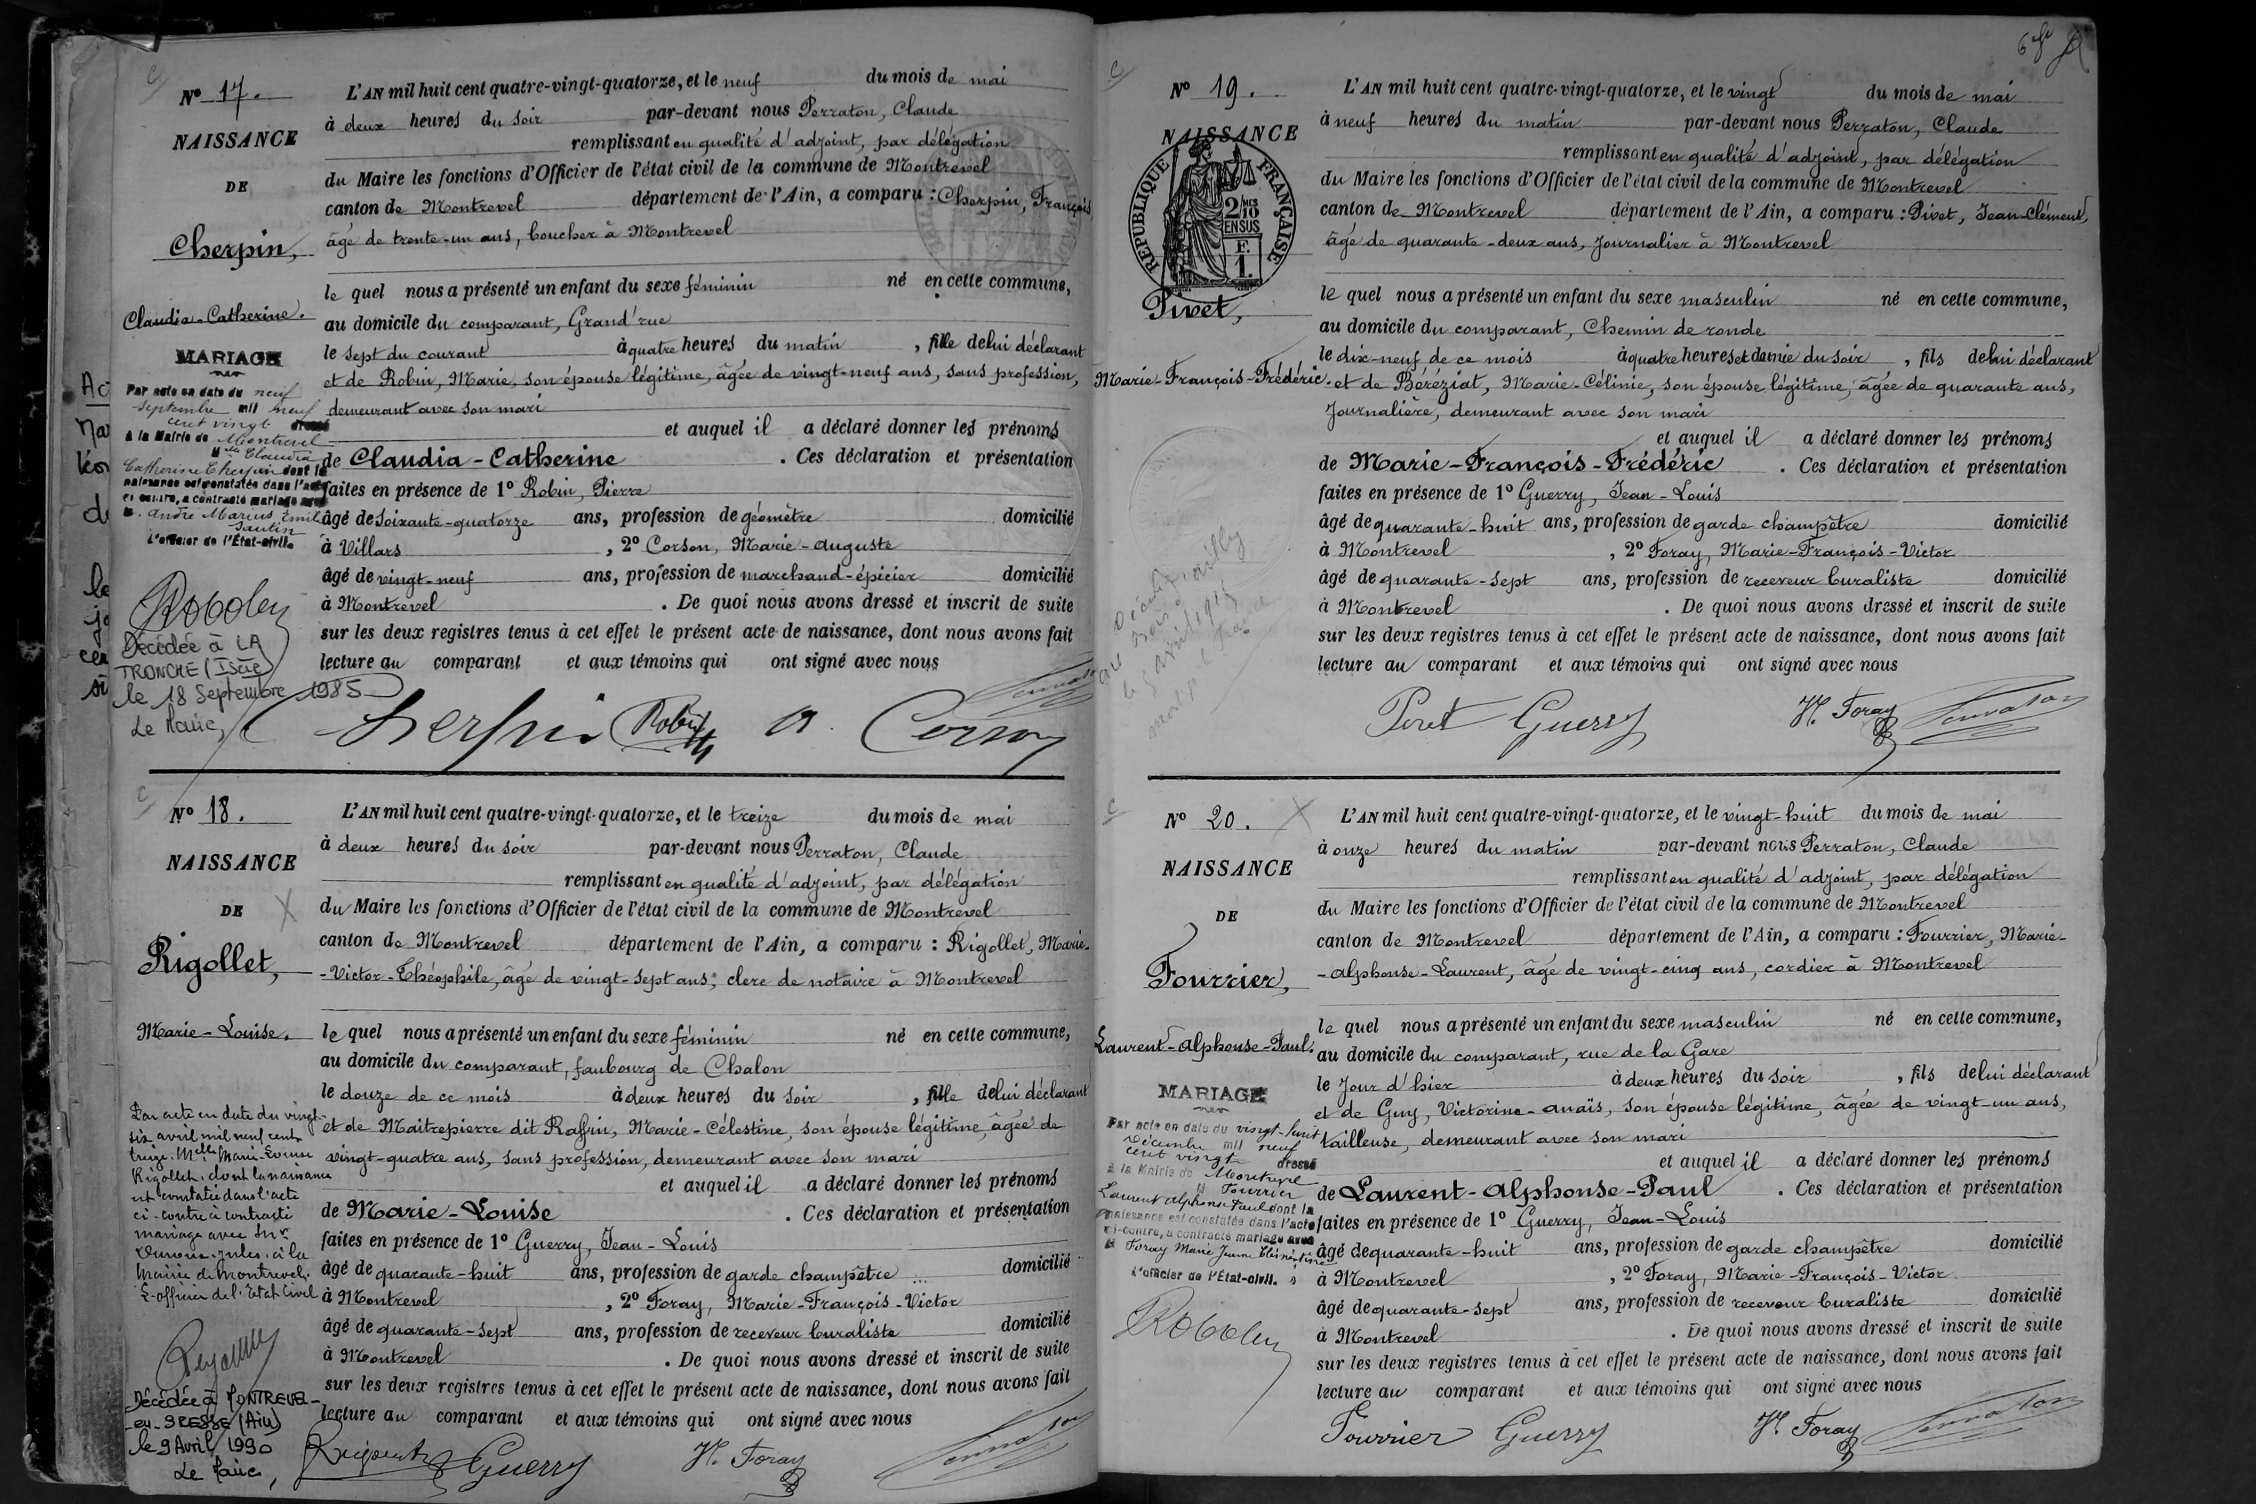 Nº 17.
NAISSANCE
DE
Cherpin,
Claudia-Catherine.
MARIAGE
Par acte en date du neuf
septembre mil neuf
cent vingt dressé
à la Mairie de Montrevel
Mlle Claudia
Catherine Cherpin dont la
naissance est constatée dans l'acte
ci-contre, a contracté mariage avec
M. André Marius Emile
L'officier de l'État-civil.
Décédée à LA
TRONCHE (Isère)
le 18 Septembre 1985
Le Maire,
L'AN mil huit cent quatre-vingt-quatorze, et le neuf du mois de mai
à deux heures du soir par-devant nous Perraton, Claude
remplissant en qualité d'adjoint, par délégation
du Maire les fonctions d'Officier de l'état civil de la commune de Montrevel
canton de Montrevel département de l'Ain, a comparu : Cherpin, François
âgé de trente-un ans, boucher à Montrevel
le quel nous a présenté un enfant du sexe féminin né en cette commune,
au domicile du comparant, Grand'rue
le sept du courant à quatre heures du matin, fille de lui déclarant
et de Robin, Marie, son épouse légitime, âgée de vingt-neuf ans, sans profession,
demeurant avec son mari
et auquel il a déclaré donner les prénoms
de Claudia-Catherine. Ces déclaration et présentation
faites en présence de 1º Robin, Pierre
âgé de soixante-quatorze ans, profession de géomètre domicilié
à Villars, 2º Corson, Marie-Auguste
âgé de vingt-neuf ans, profession de marchand-épicier domicilié
à Montrevel. De quoi nous avons dressé et inscrit de suite
sur les deux registres tenus à cet effet le présent acte de naissance, dont nous avons fait
lecture au comparant et aux témoins qui ont signé avec nous
Cherpin Robin A. Corson Perraton
Nº 18.
NAISSANCE
DE
Rigollet,
Marie-Louise.
Par acte en date du vingt
six avril mil neuf cent
treize. Melle Marie-Louise
Rigollet, dont la naissance
est constatée dans l'acte
ci-contre a contracté
mariage avec Mr
Jules, à la
Mairie de Montrevel.
L'officier de l'Etat Civil
Décédée à MONTREVEL-
-en-BRESSE (Ain)
le 9 Avril 1990
Le Maire,
L'AN mil huit cent quatre-vingt-quatorze, et le treize du mois de mai
à deux heures du soir par-devant nous Perraton, Claude
remplissant en qualité d'adjoint, par délégation
du Maire les fonctions d'Officier de l'état civil de la commune de Montrevel
canton de Montrevel département de l'Ain, a comparu : Rigollet, Marie-
-Victor-Théophile, âgé de vingt-sept ans, clerc de notaire à Montrevel
le quel nous a présenté un enfant du sexe féminin né en cette commune,
au domicile du comparant, faubourg de Chalon
le douze de ce mois à deux heures du soir, fille de lui déclarant
et de Maitrepierre dit Raffin, Marie-Célestine, son épouse légitime, âgée de
vingt-quatre ans, sans profession, demeurant avec son mari
et auquel il a déclaré donner les prénoms
de Marie-Louise. Ces déclaration et présentation
faites en présence de 1º Guerry, Jean-Louis
âgé de quarante-huit ans, profession de garde champêtre domicilié
à Montrevel, 2º Foray, Marie-François-Victor
âgé de quarante-sept ans, profession de receveur buraliste domicilié
à Montrevel. De quoi nous avons dressé et inscrit de suite
sur les deux registres tenus à cet effet le présent acte de naissance, dont nous avons fait
lecture au comparant et aux témoins qui ont signé avec nous
Guerry Vr. Foray Perraton
Nº 19.
NAISSANCE
RÉPUBLIQUE FRANÇAISE
2/10 EN SUS
F. 1.
Pivet,
Marie-François-Frédéric.
L'AN mil huit cent quatre-vingt-quatorze, et le vingt du mois de mai
à neuf heures du matin par-devant nous Perraton, Claude
remplissant en qualité d'adjoint, par délégation
du Maire les fonctions d'Officier de l'état civil de la commune de Montrevel
canton de Montrevel département de l'Ain, a comparu : Pivet, Jean-Clément,
âgé de quarante-deux ans, Journalier à Montrevel
le quel nous a présenté un enfant du sexe masculin né en cette commune,
au domicile du comparant, Chemin de ronde
le dix-neuf de ce mois à quatre heures et demie du soir, fils de lui déclarant
et de Béréziat, Marie-Célinie, son épouse légitime, âgée de quarante ans,
Journalière, demeurant avec son mari
et auquel il a déclaré donner les prénoms
de Marie-François-Frédéric. Ces déclaration et présentation
faites en présence de 1º Guerry, Jean-Louis
âgé de quarante-huit ans, profession de garde champêtre domicilié
à Montrevel, 2º Foray, Marie-François-Victor
âgé de quarante-sept ans, profession de receveur buraliste domicilié
à Montrevel. De quoi nous avons dressé et inscrit de suite
sur les deux registres tenus à cet effet le présent acte de naissance, dont nous avons fait
lecture au comparant et aux témoins qui ont signé avec nous
Pivet Guerry Vr. Foray Perraton
Nº 20.
NAISSANCE
DE
Fourrier,
Laurent-Alphonse-Paul.
MARIAGE
Par acte en date du vingt-huit
décembre mil neuf
cent vingt dressé
à la Mairie de Montrevel
M Fourrier
Laurent Alphonse Paul dont la
naissance est constatée dans l'acte
ci-contre, a contracté mariage avec
M Foray Marie Jeanne Clémentine
L'officier de l'État-civil.
L'AN mil huit cent quatre-vingt-quatorze, et le vingt-huit du mois de mai
à onze heures du matin par-devant nous Perraton, Claude
remplissant en qualité d'adjoint, par délégation
du Maire les fonctions d'Officier de l'état civil de la commune de Montrevel
canton de Montrevel département de l'Ain, a comparu : Fourrier, Marie-
-Alphonse-Laurent, âgé de vingt-cinq ans, cordier à Montrevel
le quel nous a présenté un enfant du sexe masculin né en cette commune,
au domicile du comparant, rue de la Gare
le Jour d'hier à deux heures du soir, fils de lui déclarant
et de Guy, Victorine-Anaïs, son épouse légitime, âgée de vingt-un ans,
tailleuse, demeurant avec son mari
et auquel il a déclaré donner les prénoms
de Laurent-Alphonse-Paul. Ces déclaration et présentation
faites en présence de 1º Guerry, Jean-Louis
âgé de quarante-huit ans, profession de garde champêtre domicilié
à Montrevel, 2º Foray, Marie-François-Victor
âgé de quarante-sept ans, profession de receveur buraliste domicilié
à Montrevel. De quoi nous avons dressé et inscrit de suite
sur les deux registres tenus à cet effet le présent acte de naissance, dont nous avons fait
lecture au comparant et aux témoins qui ont signé avec nous
Fourrier Guerry Vr. Foray Perraton